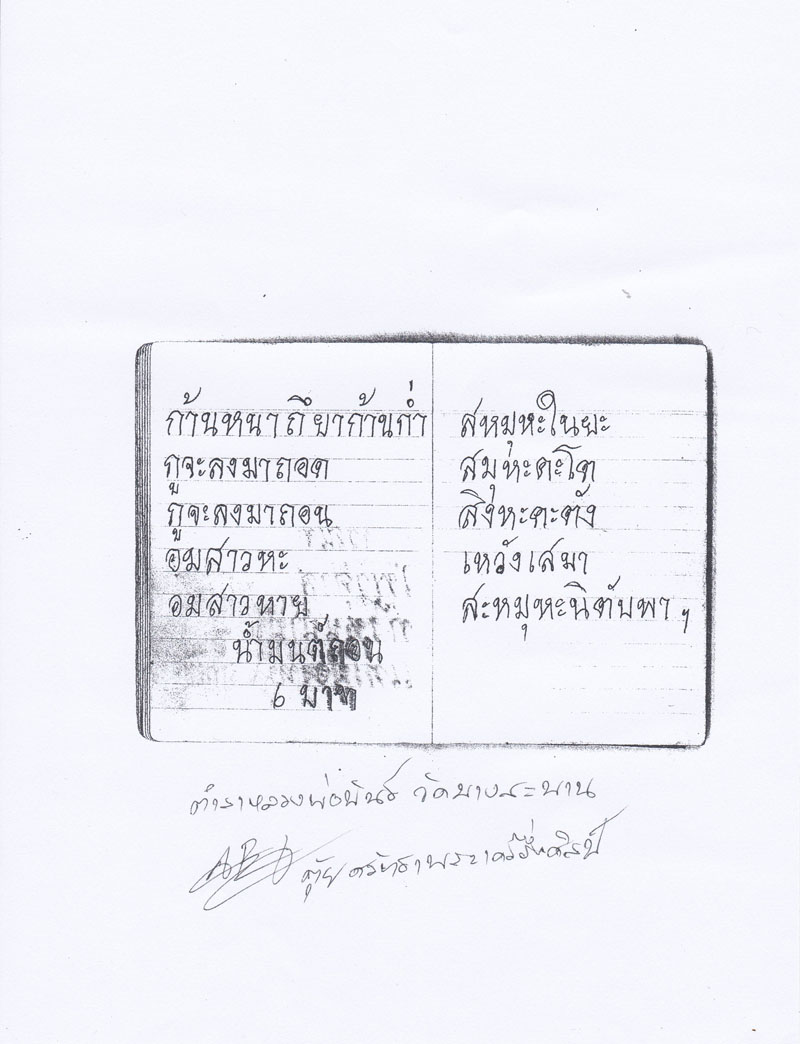 ก้านหนาถึยาก้านก่ำ
กูจะลงมาถอด
กูจะลงมาถอน
อมสาวหะ
อมสาวหาย
น้ำมนต์ถอน
๖ บาท
สหมุหะในยะ
สมุหะคะโต
สิงหะคะตัง
เหวังเสมา
สะหมุหะนิตับพา ๆ
ตำราหลวงพ่อพันธ์ วัดบางสะพาน